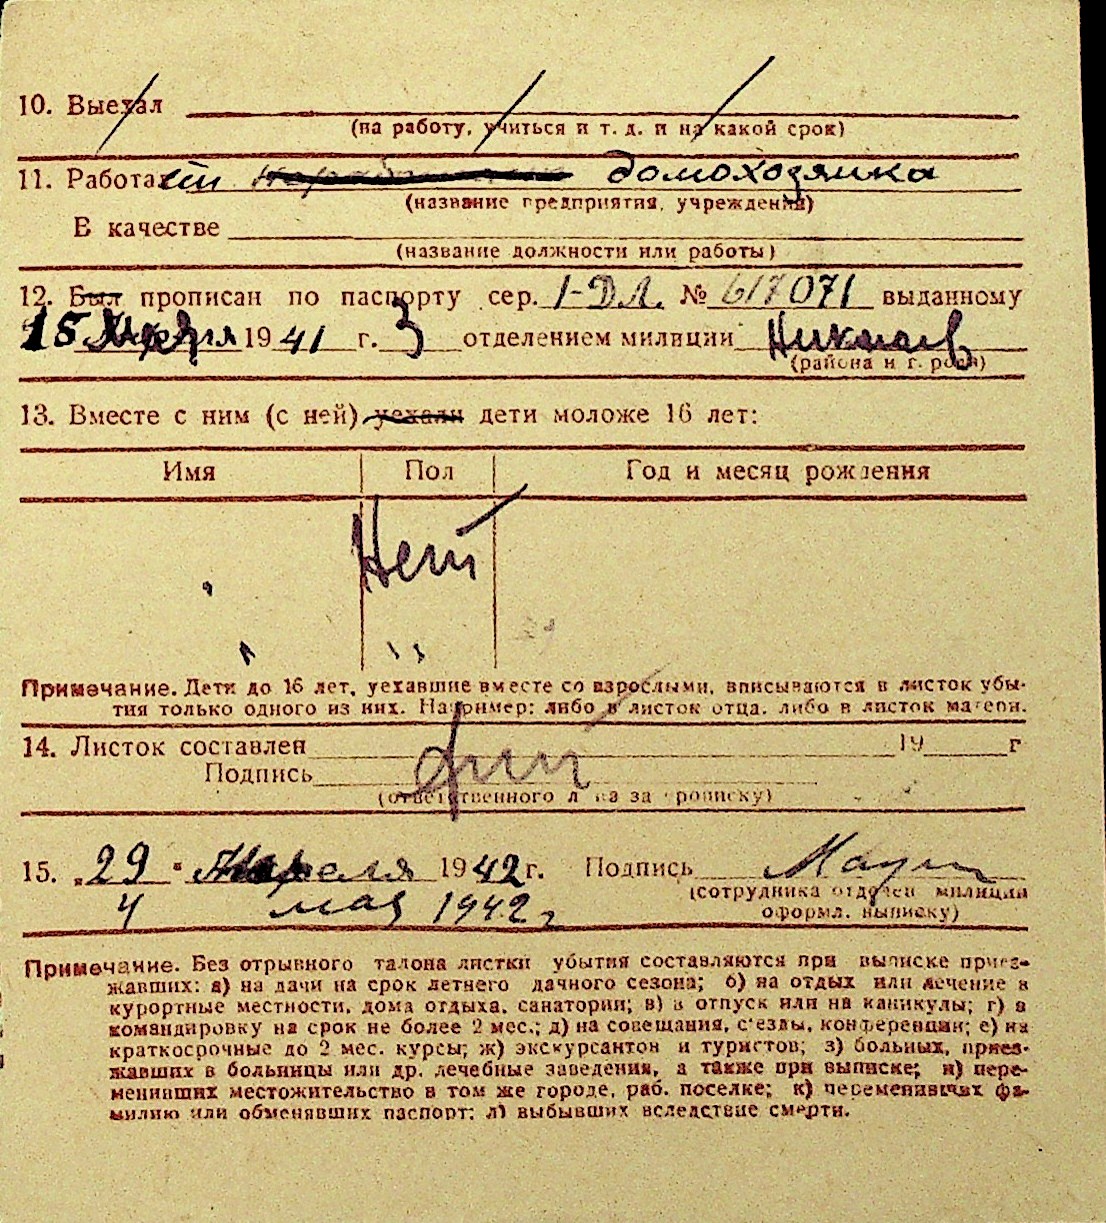 10. Выехал
(на работу, учиться и т. д. и на какой срок)
11. Работает домохозяйка
(название предприятия, учреждения)
В качестве
(название должности или работы)
12. Был прописан по паспорту сер. I-ДЛ. № 617071 выданному
15 1941 г. 3 отделением милиции Николаев
(района и г. рода)
13. Вместе с ним (с ней) уехали дети моложе 16 лет:
Имя Пол Год и месяц рождения
Нет
Примечание. Дети до 16 лет, уехавшие вместе со взрослыми, вписываются в листок убы-
тия только одного из них. Например: либо в листок отца, либо в листок матери.
14. Листок составлен 19 г
Подпись
(ответственного лица за прописку)
15. „29 " Апреля 1942 г. Подпись
(сотрудника отделен милиции
4 мая 1942 г
оформл. выписку)
Примечание. Без отрывного талона листки убытия составляются при выписке приез-
жавших: а) на дачи на срок летнего дачного сезона; б) на отдых или лечение в
курортные местности, дома отдыха, санатории; в) в отпуск или на каникулы; г) в
командировку на срок не более 2 мес.; д) на совещания, с'езды, конференции; е) на
краткосрочные до 2 мес. курсы; ж) экскурсантов и туристов; з) больных, приез-
жавших в больницы или др. лечебные заведения, а также при выписке; и) пере-
менивших местожительство в том же городе, раб. поселке; к) переменивших фа-
милию или обменявших паспорт; л) выбывших вследствие смерти.